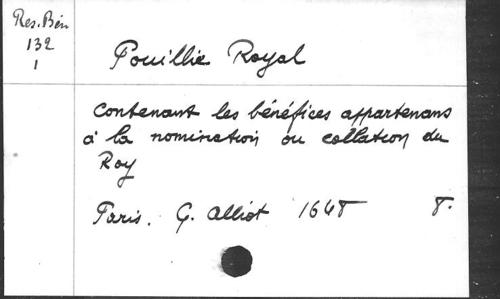 Res. Bén
132
1
Pouillie Royal
Contenant les bénéfices appartenans
à la nomination ou collation du
Roy
Paris. G. Alliot 1648 8.